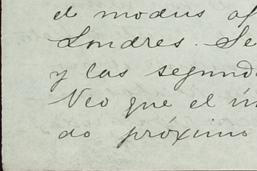 el modus o
Londres. Se
y las segund
Veo que el ú
do próximo